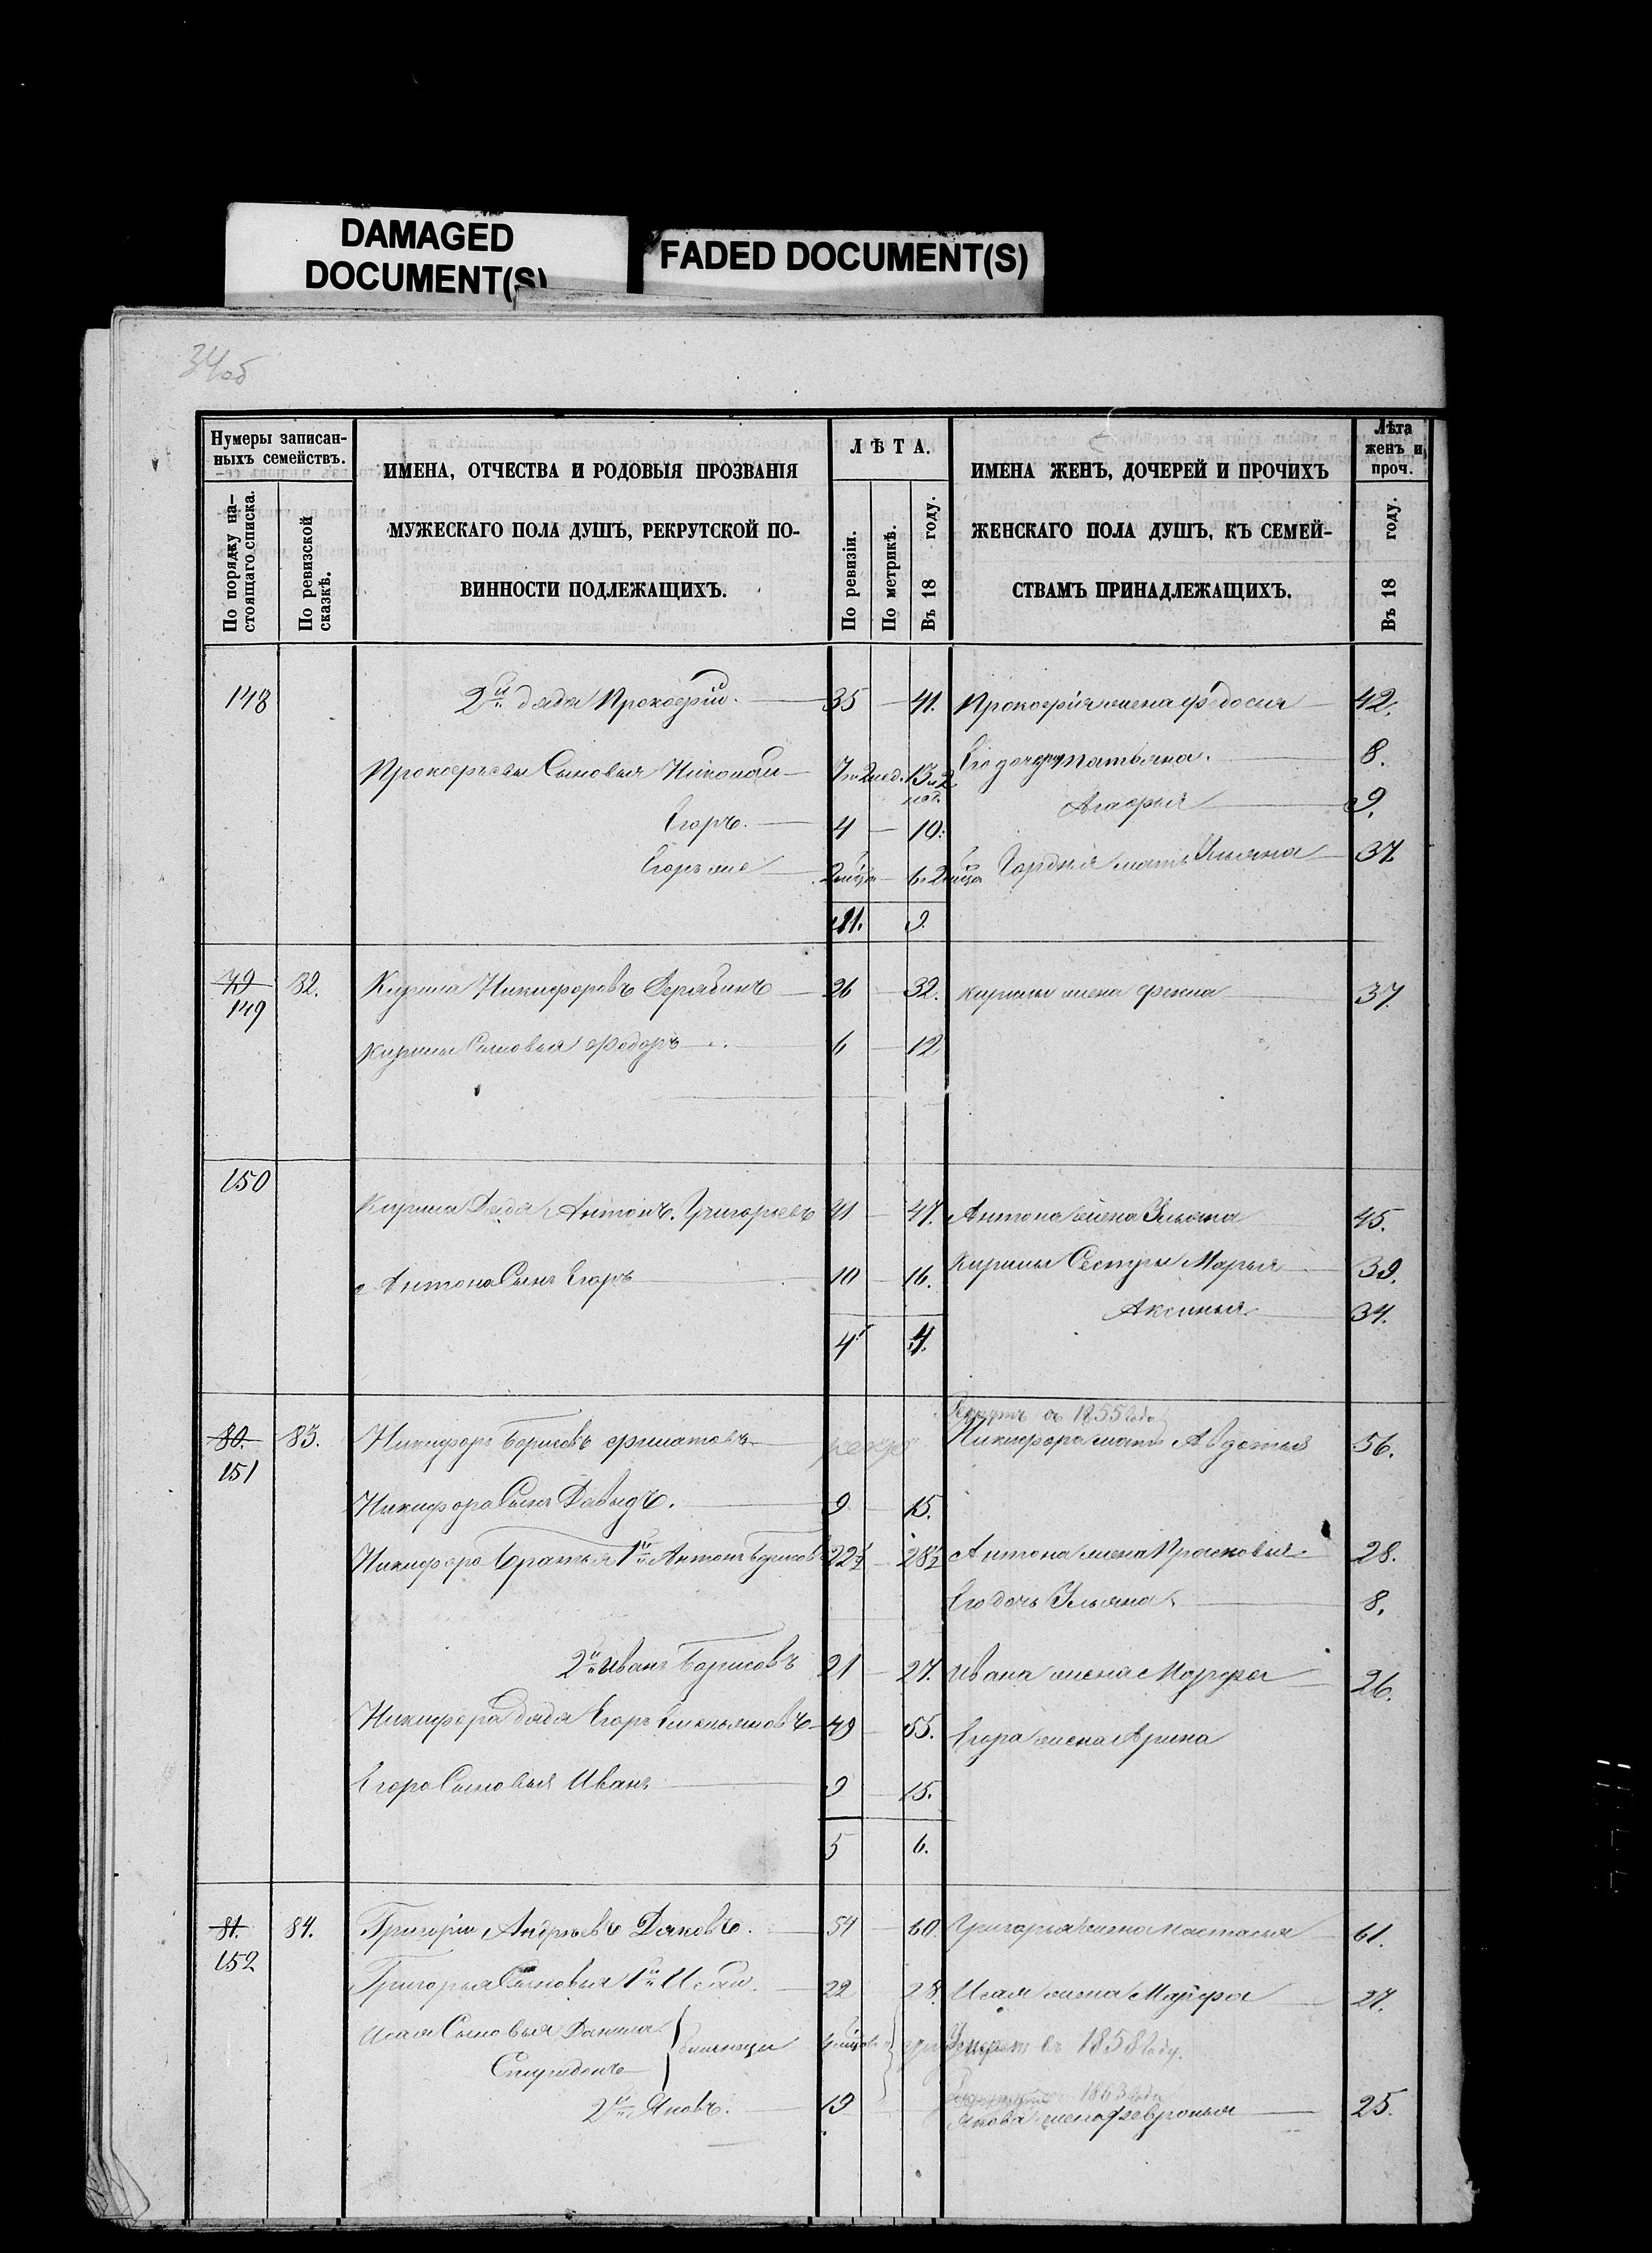 DAMAGED
DOCUMENT(S)
FADED DOCUMENT(S)
34об
Нумеры записан-
ныхъ семействъ.
По порядку на-
стоящаго списка.
По ревизской
сказкѣ.
ИМЕНА, ОТЧЕСТВА И РОДОВЫЯ ПРОЗВАНІЯ
МУЖЕСКАГО ПОЛА ДУШЪ, РЕКРУТСКОЙ ПО-
ВИННОСТИ ПОДЛЕЖАЩИХЪ.
ЛѢТА.
По ревизіи.
По метрикѣ.
Въ 18 году.
ИМЕНА ЖЕНЪ, ДОЧЕРЕЙ И ПРОЧИХЪ
ЖЕНСКАГО ПОЛА ДУШЪ, КЪ СЕМЕЙ-
СТВАМЪ ПРИНАДЛЕЖАЩИХЪ.
Лѣта
женъ и
проч.
Въ 18 году.
148 2й дядя Прокофій. 35 41. Прокофія жена Федосия 42.
Прокофьевы Сыновья Николай 7 и 2 нед. 13 и 2 нед. Его дочери Татьяна. 8.
Егоръ. 4 10. Агафья 9.
Егоръ же 2 мѣца 6 и 2 мѣца Гордѣя мать Ульяна 37.
11. 9.
79 82. Кирила Никифоровъ 26 32. Кирилы жена Фекла 37.
149
Кирилы Сыновья Федоръ 6 12
150
Кирила Дядя Антонъ Григорьевъ 41 47. Антона жена Ульяна 45.
Антона Сынъ Егоръ 10 16. Кирилы Сестры Марья 39.
Аксинья 34.
4 4.
Рекрутъ въ 1855 году
80. 83. Никифоръ Борисовъ Филатовъ Никифора мать Авдотья 56.
151
Никифора Сынъ Давыдъ. 9 15.
Никифора братья 1й Антонъ Борисовъ 22½ 28½ Антона жена Прасковья 28.
Его дочь Ульяна 8.
2й Иванъ Борисовъ 21 27. Ивана жена Марфа 26.
Никифора дядя Егоръ Емельяновъ 49 55. Егора жена Арина
Егора Сыновья Иванъ 9 15.
5 6.
81. 84. Григорій Андреевъ Дьяковъ. 54 60. Григорья жена Настасья 61.
152
Григорья Сыновья 1й Исай. 22 28. Исая жена Марфа 27.
Исая Сыновья Данила близнецы Умеръ въ 1858 году.
Спиридонъ
1863 года
2й Яковъ. 19 Якова жена Февронья 25.